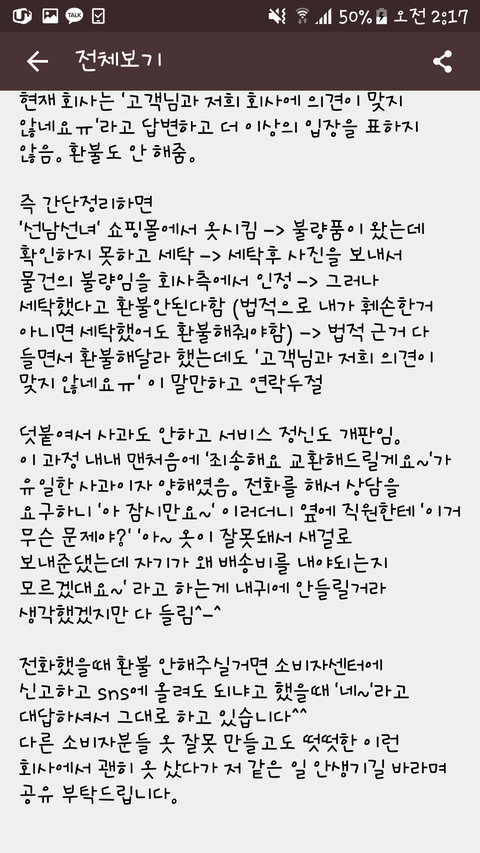 TALK
50% 오전 2:17
전체보기
현재 회사는 '고객님과 저희 회사에 의견이 맞지
않네요ㅠ'라고 답변하고 더 이상의 입장을 표하지
않음. 환불도 안 해줌.
즉 간단정리하면
'선남선녀' 쇼핑몰에서 옷시킴 -> 불량품이 왔는데
확인하지 못하고 세탁 -> 세탁후 사진을 보내서
물건의 불량임을 회사측에서 인정 -> 그러나
세탁했다고 환불안된다함 (법적으로 내가 훼손한거
아니면 세탁했어도 환불해줘야함) -> 법적 근거 다
들면서 환불해달라 했는데도 '고객님과 저희 의견이
맞지 않네요ㅠ' 이 말만하고 연락두절
덧붙여서 사과도 안하고 서비스 정신도 개판임.
이 과정 내내 맨처음에 '죄송해요 교환해드릴게요~'가
유일한 사과이자 양해였음. 전화를 해서 상담을
요구하니 '아 잠시만요~' 이러더니 옆에 직원한테 '이거
무슨 문제야?' '아~ 옷이 잘못돼서 새걸로
보내준댔는데 자기가 왜 배송비를 내야되는지
모르겠대요~' 라고 하는게 내귀에 안들릴거라
생각했겠지만 다 들림^-^
전화했을때 환불 안해주실거면 소비자센터에
신고하고 sns에 올려도 되냐고 했을때 '네~'라고
대답하셔서 그대로 하고 있습니다^^
다른 소비자분들 옷 잘못 만들고도 떳떳한 이런
회사에서 괜히 옷 샀다가 저 같은 일 안생기길 바라며
공유 부탁드립니다.